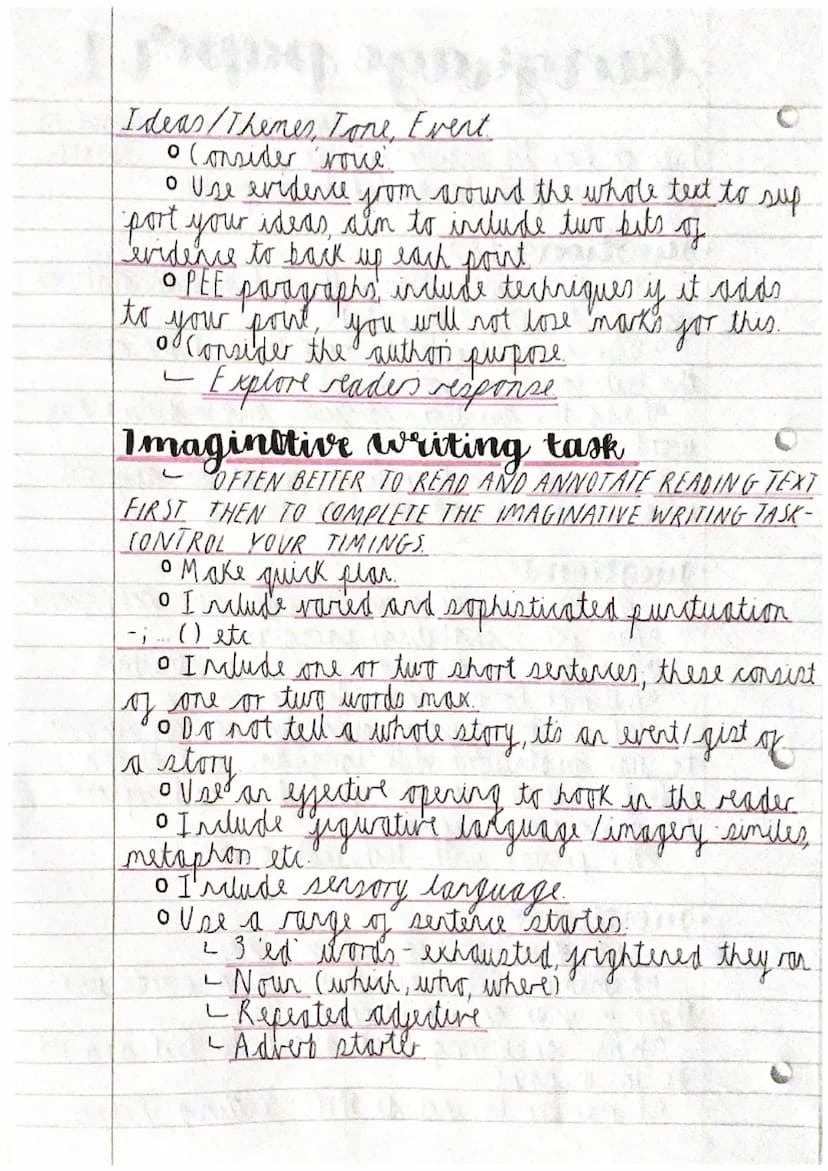 Ideas/Themes, Tone, Event.
o Consider 'voice'
o Use evidence from around the whole text to sup
port your ideas, aim to include two bits of
evidence to back up each point.
o PEE paragraphs, include techniques if it adds
to your point, you will not lose marks for this.
o Consider the author's purpose.
└ Explore readers response.
Imaginative writing task
└ OFTEN BETTER TO READ AND ANNOTATE READING TEXT
FIRST THEN TO COMPLETE THE IMAGINATIVE WRITING TASK-
CONTROL YOUR TIMINGS.
o Make quick plan.
o Include varied and sophisticated punctuation
-;...() etc
o Include one or two short sentences, these consist
of one or two words max.
o Do not tell a whole story, it's an event/gist of
a story.
o Use an effective opening to hook in the reader
o Include figurative language/imagery-similes,
metaphors etc.
o Include sensory language.
o Use a range of sentence starters:
└ 3 'ed' words - exhausted, frightened they ran
└ Noun (which, who, where)
└ Repeated adjective
└ Adverb starter